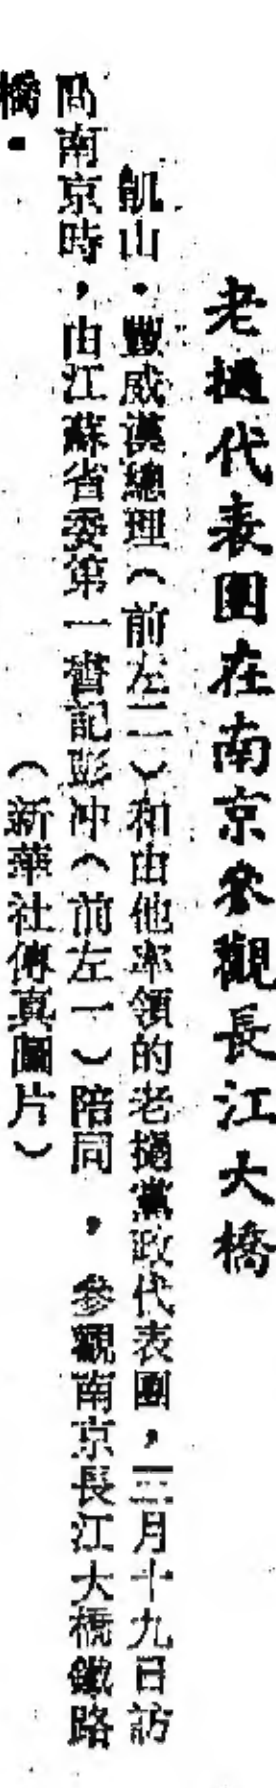 老撾代表團在南京參觀長江大橋
凱山·豐威漢總理（前左二）和由他率領的老撾黨政代表團，三月十九日訪
問南京時，由江蘇省委第一書記彭冲（前左一）陪同，參觀南京長江大橋鐵路
橋。
（新華社傳真圖片）